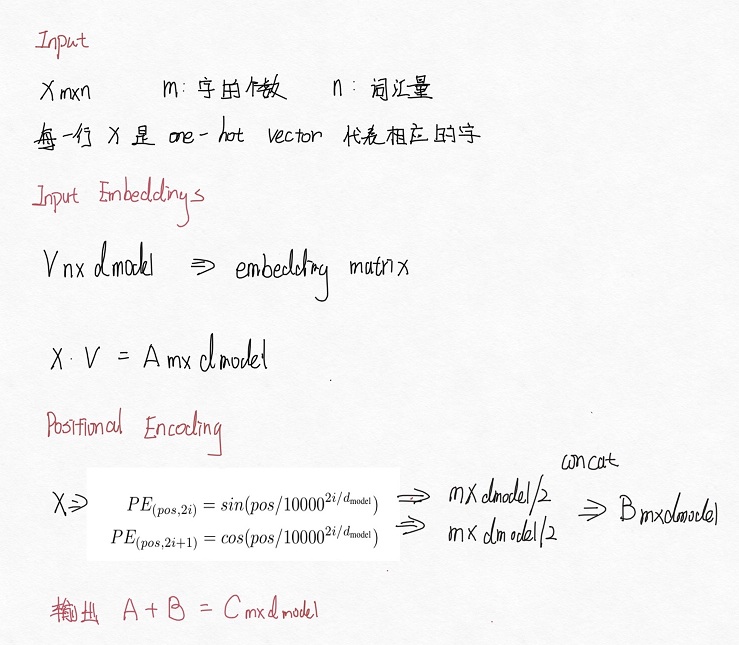 Input
Xmxn m: 字的个数 n: 词汇量
每一行 X 是 one-hot vector 代表相应的字
Input Embeddings
Vnx dmodel ⇒ embedding matrix
X · V = Amx dmodel
Positional Encoding
concat
X⇒ PE(pos,2i) = sin(pos/10000^2i/dmodel) ⇒ mx dmodel/2 ⇒ Bmxdmodel
PE(pos,2i+1) = cos(pos/10000^2i/dmodel) ⇒ mx dmodel/2
输出 A + B = Cmxdmodel